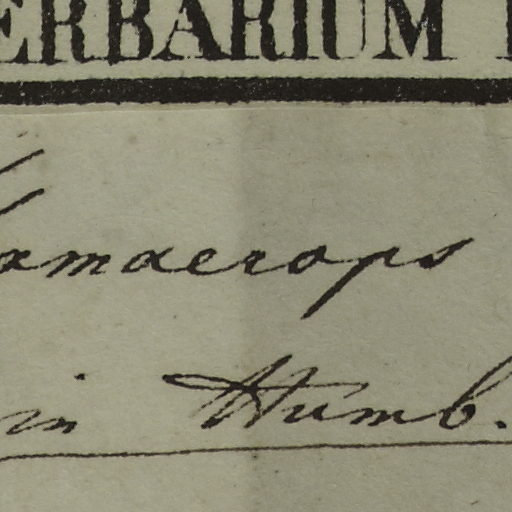 ERBARIUM
amaerops
in Humb.